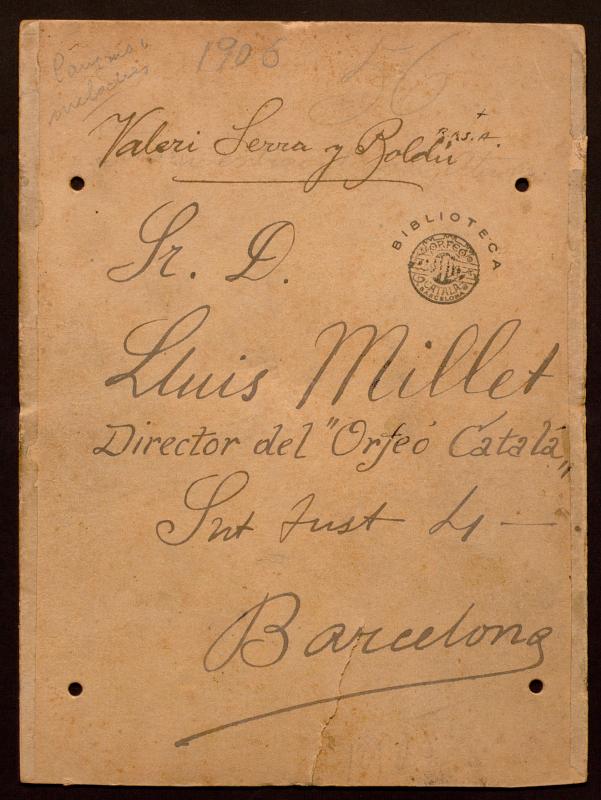 1906
56
Valeri Serra y Boldú
BIBLIOTECA
ORFEÓ
CATALÀ
BARCELONA
Sr. D.
Lluis Millet
Director del "Orfeó Català"
Snt Just 4 —
Barcelona